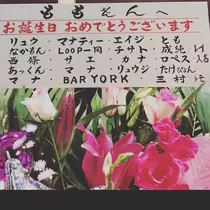 ももたんへ
お誕生日 おめでとうございます
リュウ ・ マナティー ・ エイジ ・ とも
なかもん ・ LOOP一同 ・ チサト ・ 成純
西條 ・ サエ ・ カナ ・ ロペス
あっくん ・ マナ ・ リュウジ ・ たけ
マナ ・ BAR YORK ・ 三村